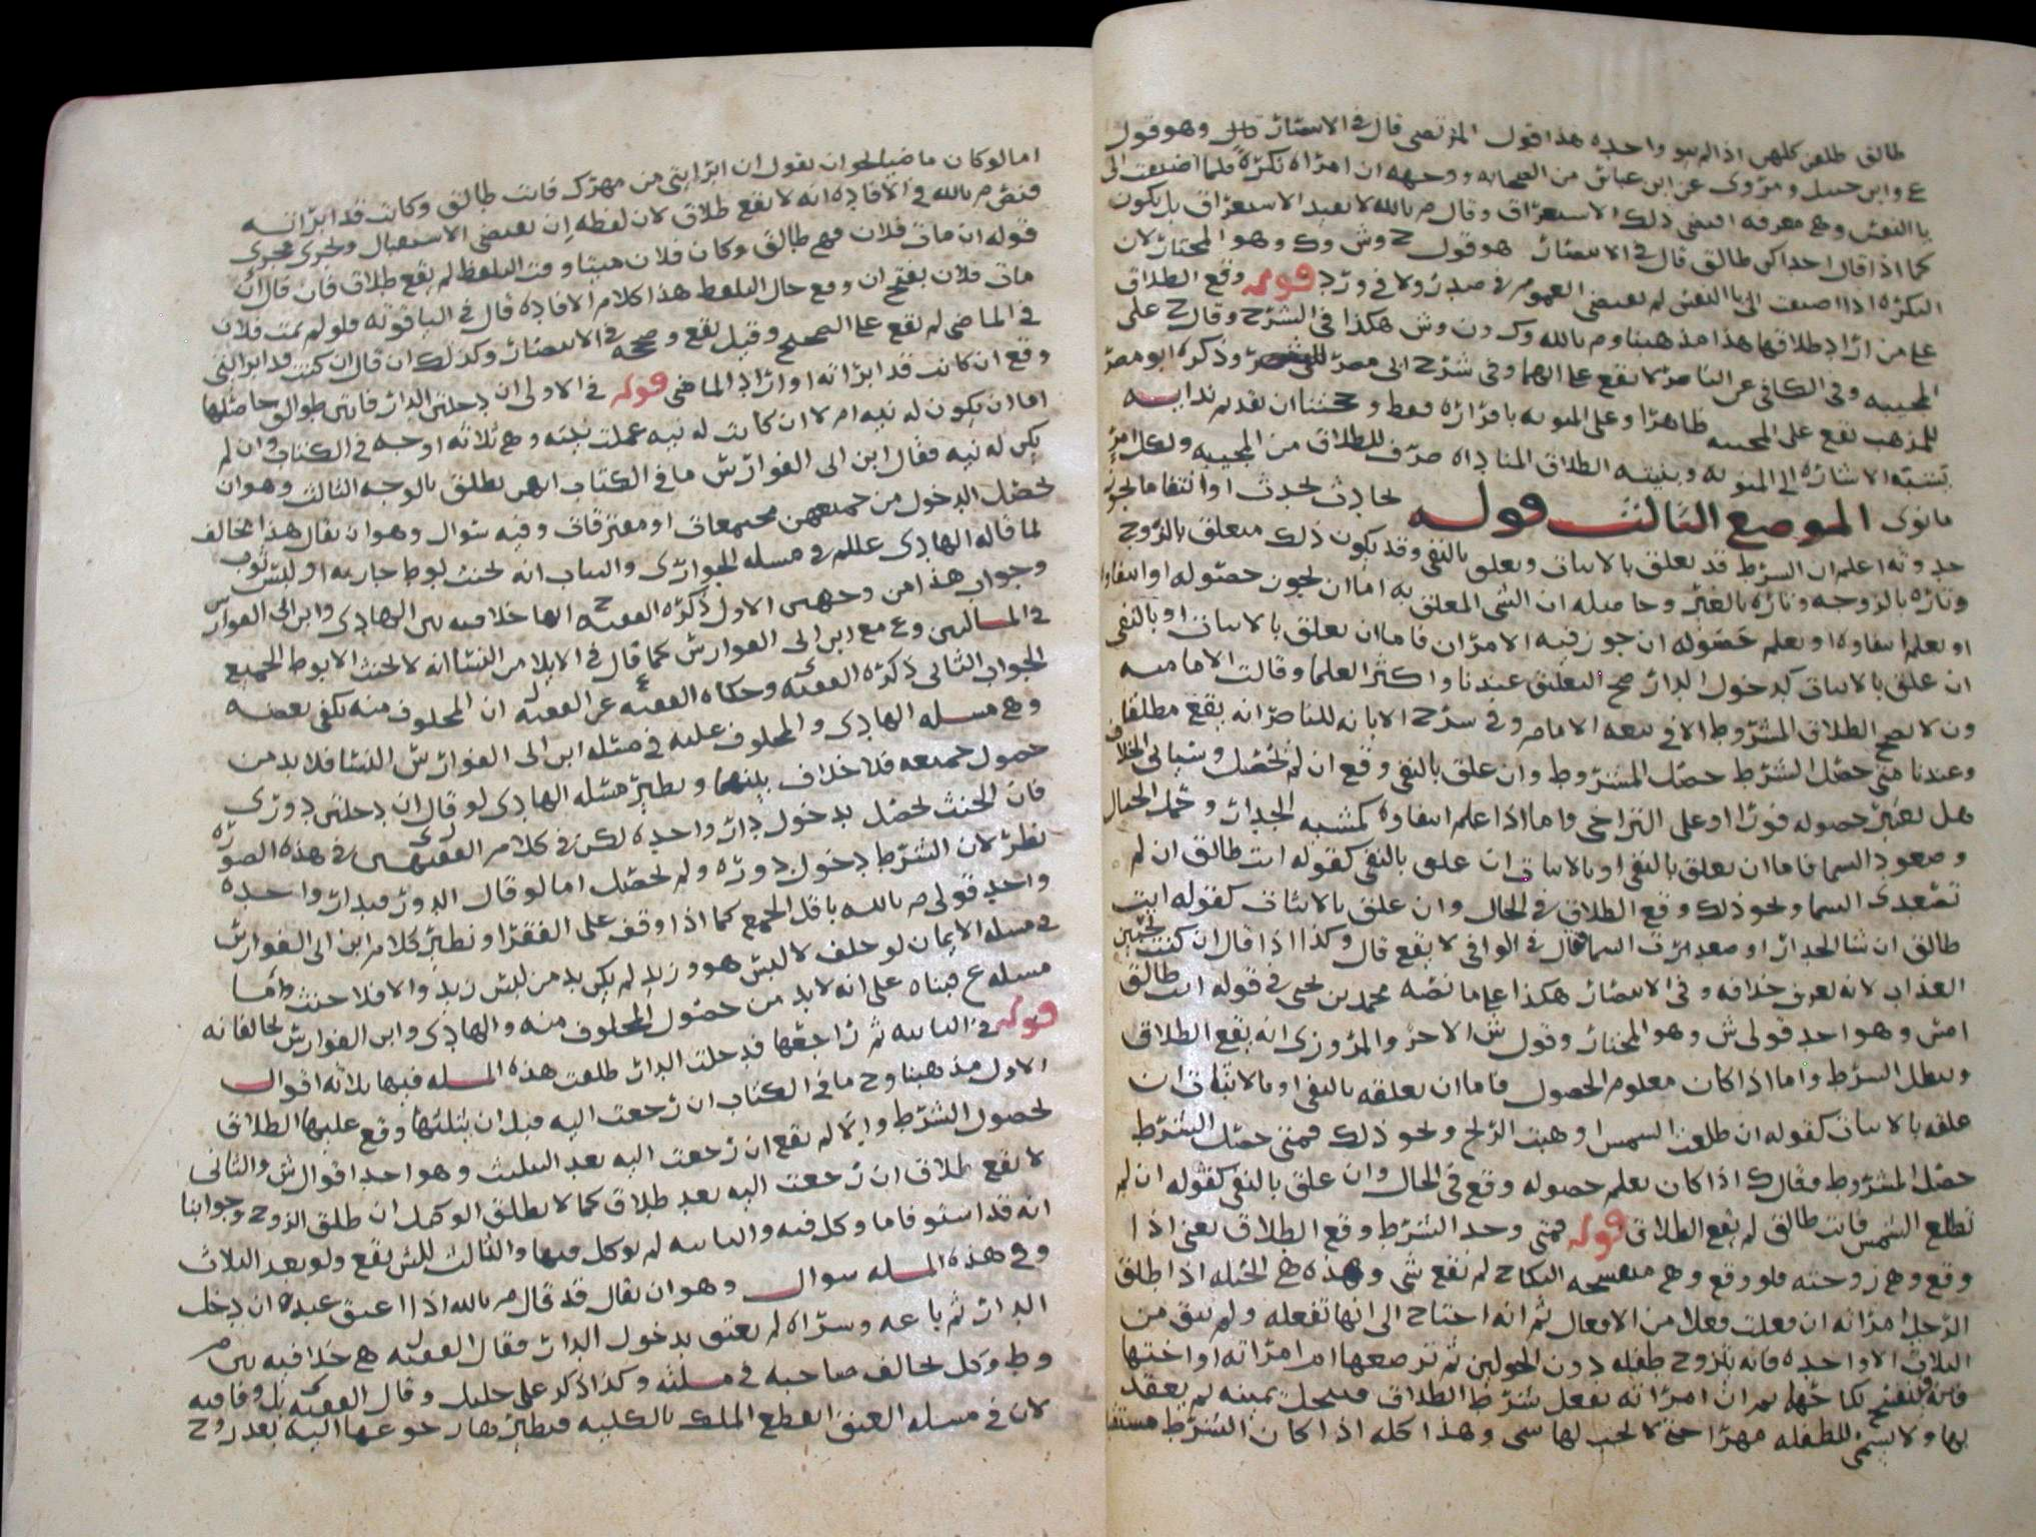 طالق طلقن كلهن اذا لم ينو واحده هذا قول المرتضى قال في الانتصار وهو قول
ع وابن حنبل ومروى عن ابن عباس من الصحابه ووجهه ان امراه نكره فلما اضيفت الى
يا النفس وهي معرفه اقتضى ذلك الاستغراق وقال م بالله لا يفيد الاستغراق بل يكون
كما اذا قال احداكن طالق قال في الانتصار هو قول ح وش وك وهو المختار لان
النكره اذا اضيفت الى يا النفس لم يقتضى العموم في صدر ولا في ورد قوله وقع الطلاق
على من اراد طلاقها هذا مذهبنا وم بالله وك ون وش هكذا في الشرح وقال ح على
المجيبه وفي الكافي عن الناصر لا يقع عليهما وفي شرح ابى مضر وذكره ابو مضر
للمذهب يقع على المجيبه ظاهرا وعلى المنويه باقراره فقط وحجتنا ان تقديم ندايه
الاشاره الى المنويه وبنيته الطلاق المناداه صرف للطلاق من المجيبه ولكل امرئ
ما نوى الموضع الثالث قوله لحادث يحدث او انتفاء ما يجوز
حدوثه اعلم ان الشرط قد يعلق بالاثبات ويعلق بالنفي وقد يكون ذلك متعلق بالزوج
وتاره بالزوجه وتاره بالغير وحاصله ان الشي المعلق به اما ان يجوز حصوله او انتفاوه
او يعلم انتفاوه او يعلم حصوله ان جوز فيه الامران فاما ان يعلق بالاثبات او بالنفي
ان علق بالاثبات كدخول الدار صح التعليق عندنا واكثر العلما وقالت الاماميه
ون لا يصح الطلاق المشروط الا في بيعه الامام وفي شرح الابانه للناصر انه يقع مطلقا
وعندنا متى حصل الشرط حصل المشروط وان علق بالنفي وقع ان لم يحصل وسياتى الخلاف
هل يعتبر حصوله فورا او على التراخى واما اذا علم انتفاوه كمشيه الجدار وحمل الجبال
وصعود السما فاما ان يعلق بالنفي او بالاثبات ان علق بالنفي كقوله انت طالق ان لم
تصعدى السما ونحو ذلك وقع الطلاق في الحال وان علق بالاثبات كقوله انت
طالق ان شا الجدار او صعدت السما فقال في الوافي لا يقع قال وكذا اذا قال ان كنت تحبين
العذاب لانه يعرف خلافه وفي الانتصار هكذا على ما نصه محمد بن يحيى في قوله انت طالق
امس وهو احد قولى ش وهو المختار وقول ش الاخر والمزوزى انه يقع الطلاق
ويبطل الشرط واما اذا كان معلوم الحصول فاما ان يعلقه بالنفي او بالاثبات ان
علقه بالاثبات كقوله ان طلعت الشمس او هبت الريح ونحو ذلك فمتى حصل الشرط
حصل المشروط وقال ك اذا كان يعلم حصوله وقع في الحال وان علق بالنفي كقوله ان لم
تطلع الشمس فانت طالق لم يقع الطلاق قوله فمتى وجد الشرط وقع الطلاق يعنى اذا
وقع وهي زوجته فلو وقع وهي منفسخه النكاح لم يقع شى وهذه هي الحيله اذا طلق
الرجل امراته ان فعلت فعلا من الافعال ثم انه احتاج الى انها تفعله ولم يبق من
الثلاث الا واحده فانه يتزوج طفله دون الحولين ثم ترضعها ام امراته او اختها
فانه ينفسخ نكاحها ثم ان امراته تفعل شرط الطلاق فينحل يمينه ثم يعقد
بها ولا يسمى للطفله مهرا حتى لا يجب لها شى وهذا كله اذا كان الشرط مستقبلا
اما لو كان ماضيا نحو ان يقول ان ابرايتى من مهرك فانت طالق وكانت قد ابراته
فنص م بالله في الافاده انه لا يقع طلاق لان لفظه ان يقتضى الاستقبال ويجرى مجرى
قوله ان مات فلان فهي طالق وكان فلان ميتا وقت التلفظ لم يقع طلاق فان قال ان
مات فلان بفتح ان وقع حال التلفظ هذا كلام الافاده قال في الياقوته فلو لم يمت فلان
في الماضى لم يقع على الصحيح وقيل يقع وصححه في الانتصار وكذلك ان قال ان كنت قد ابرايتنى
وقع ان كانت قد ابراته او اراد الماضى قوله في الاولى ان دخلتن الدار فانتن طوالق حاصلها
اما ان يكون له نيه ام لا ان كانت له نيه عملت نيته وهي ثلاثه اوجه في الكتاب وان لم
يكن له نيه فقال ابن ابى الفوارس ما في الكتاب انهن يطلقن بالوجه الثالث وهو ان
يحصل الدخول من جميعهن مجتمعات او مفترقات وفيه سوال وهو ان يقال هذا مخالف
لما قاله الهادى علم في مسله الجوارى والثياب انه يحنث بوطي جاريه او لبس ثوب
وجواب هذا من وجهين الاول ذكره الفقيه ح انها خلافيه بين الهادى وابن ابى الفوارس
في المسالتين وع مع ابن ابى الفوارس كما قال في الايلا من النسا انه لا يحنث الا بوطي الجميع
الجواب الثانى ذكره الفقيه وحكاه الفقيه ع عن الفقيه ل ان المحلوف منه يكفي بعضه
وهي مسله الهادى والمحلوف عليه في مسله ابن ابى الفوارس النسا فلا بد من
حصول جميعه فلا خلاف بينهما ونظير مسله الهادى لو قال ان دخلتن دورى
فان الحنث يحصل بدخول دار واحده لكن في كلام الفقيهين في هذه الصوره
نظر لان الشرط دخول دوره ولم يحصل اما لو قال الدور فبدار واحده
واحد قولى م بالله باقل الجمع كما اذا وقف على الفقرا ونظير كلام ابن ابى الفوارس
في مسله الايمان لو حلف لا لبس هو وزيد لم يكن بد من لبس زيد والا فلا حنث واما
مسله ع فبناه على انه لا بد من حصول المحلوف منه والهادى وابن الفوارس يخالفانه
قوله في الثانيه ثم راجعها فدخلت الدار طلقت هذه المسله فيها ثلاثه اقوال
الاول مذهبنا وح ما في الكتاب ان رجعت اليه قبل ان يثلثها وقع عليها الطلاق
لحصول الشرط والا لم يقع ان رجعت اليه بعد التثليث وهو احد اقوال ش والثانى
لا يقع طلاق ان رجعت اليه بعد طلاق كما لا يطلق الوكيل ان طلق الزوج وجوابنا
انه قد استوفا ما وكل فيه والثانيه لم يوكل فيها والثالث للش يقع ولو بعد الثلاث
وفي هذه المسله سوال وهو ان يقال قد قال م بالله اذا اعتق عبده ان دخل
الدار ثم باعه وشراه لم يعتق بدخول الدار فقال الفقيه ل هي خلافيه بين م
وط وكل يخالف صاحبه في مسلته وكذا ذكر على خليل وقال الفقيه بل وفاقيه
لان في مسله العتق انقطع الملك بالكليه فنظيرها رجوعها اليه بعد زوج